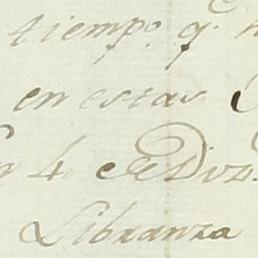 tiempo q.
en estas
4 de Diz.
Libranza